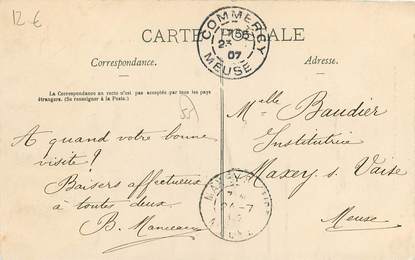 12 €
CARTE POSTALE
Correspondance.
Adresse.
La Correspondance au recto n'est pas acceptée par tous les pays
étrangers. (Se renseigner à la Poste.)
COMMERCY
23
07
MEUSE
55
A quand votre bonne
visite !
Baisers affectueux
à toutes deux
B. Manceaux
Melle Baudier
Institutrice
Maxey s. Vaise
Meuse
MAXEY
24-7